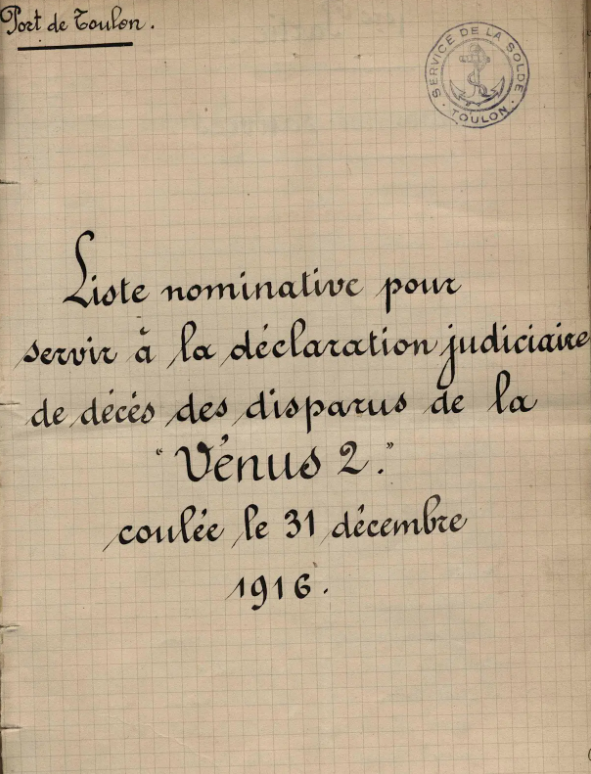 Port de Toulon.
SERVICE DE LA SOLDE
TOULON
Liste nominative pour
servir à la déclaration judiciaire
de décés des disparus de la
"Vénus 2."
coulée le 31 décembre
1916.